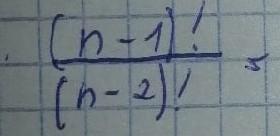 (n-1)!
(n-2)! =